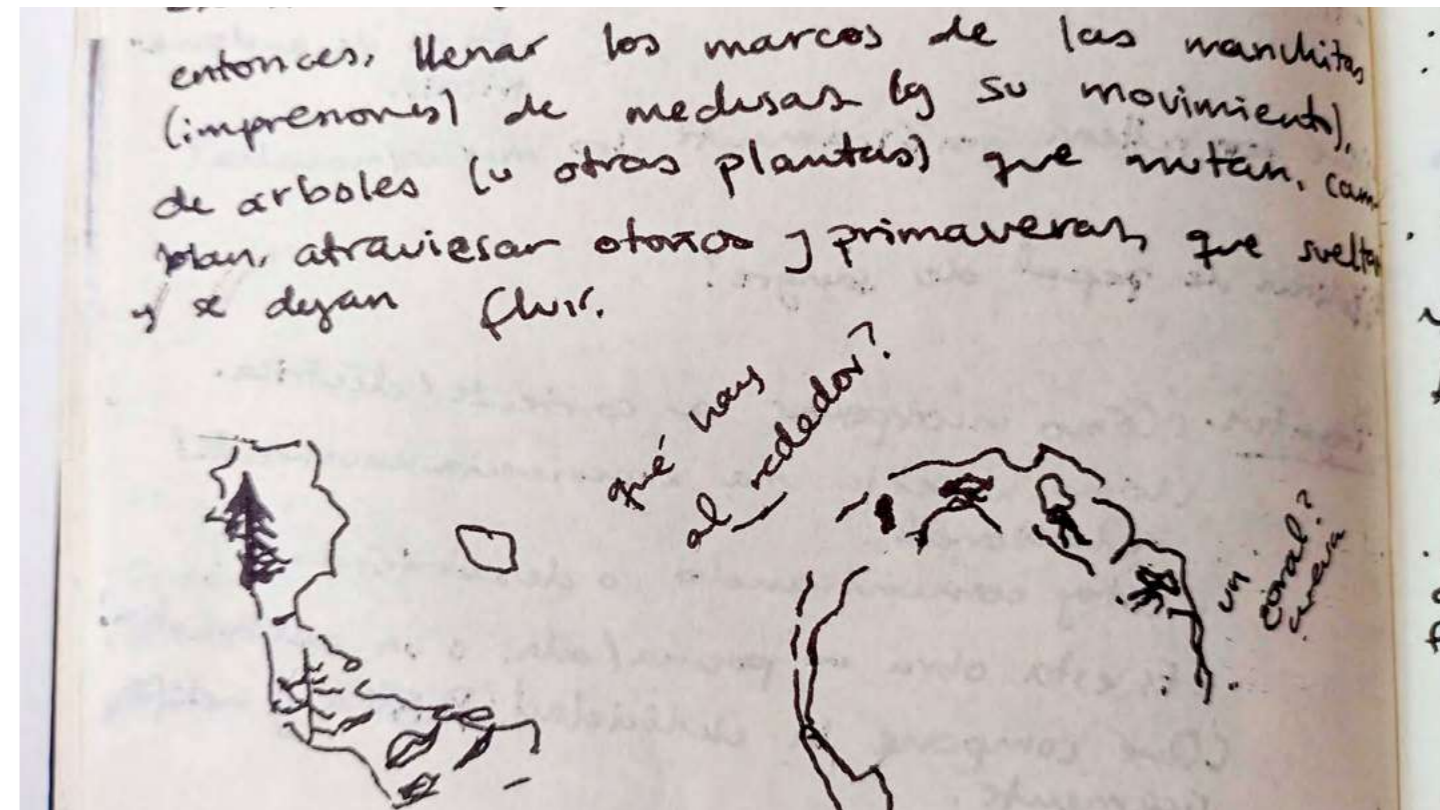 entonces, llenar los marcos de las manchitas
(impresiones) de medusas (y su movimiento),
de arboles (u otras plantas) que mutan, cam-
bian, atraviesan otoños y primaveras, que sueltan
y se dejan fluir.
qué hay
al rededor?
un
coral?